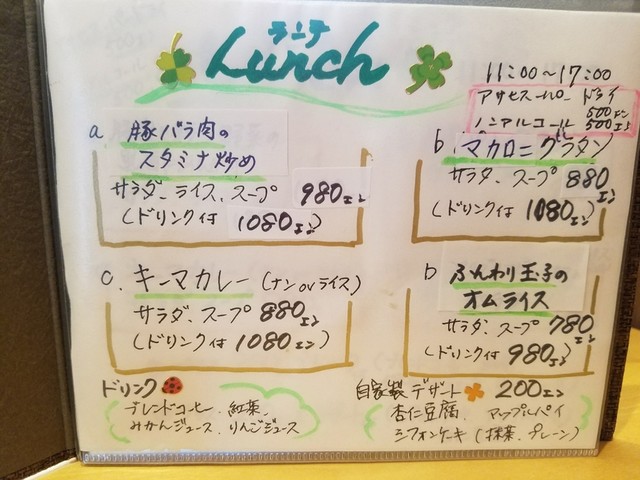 ランチ
Lunch
11:00~17:00
アサヒスーパードライ
500エン
ノンアルコール 500エン
a 豚バラ肉の
スタミナ炒め
サラダ、ライス、スープ 980エン
(ドリンク付 1080エン)
b. マカロニグラタン
サラダ、スープ 880エン
(ドリンク付 1080エン)
c. キーマカレー (ナンorライス)
サラダ、スープ 880エン
(ドリンク付 1080エン)
b ふんわり玉子の
オムライス
サラダ、スープ 780エン
(ドリンク付 980エン)
ドリンク
ブレンドコーヒー、紅茶、
みかんジュース、りんごジュース
自家製デザート 200エン
杏仁豆腐、アップルパイ
シフォンケーキ (抹茶、プレーン)